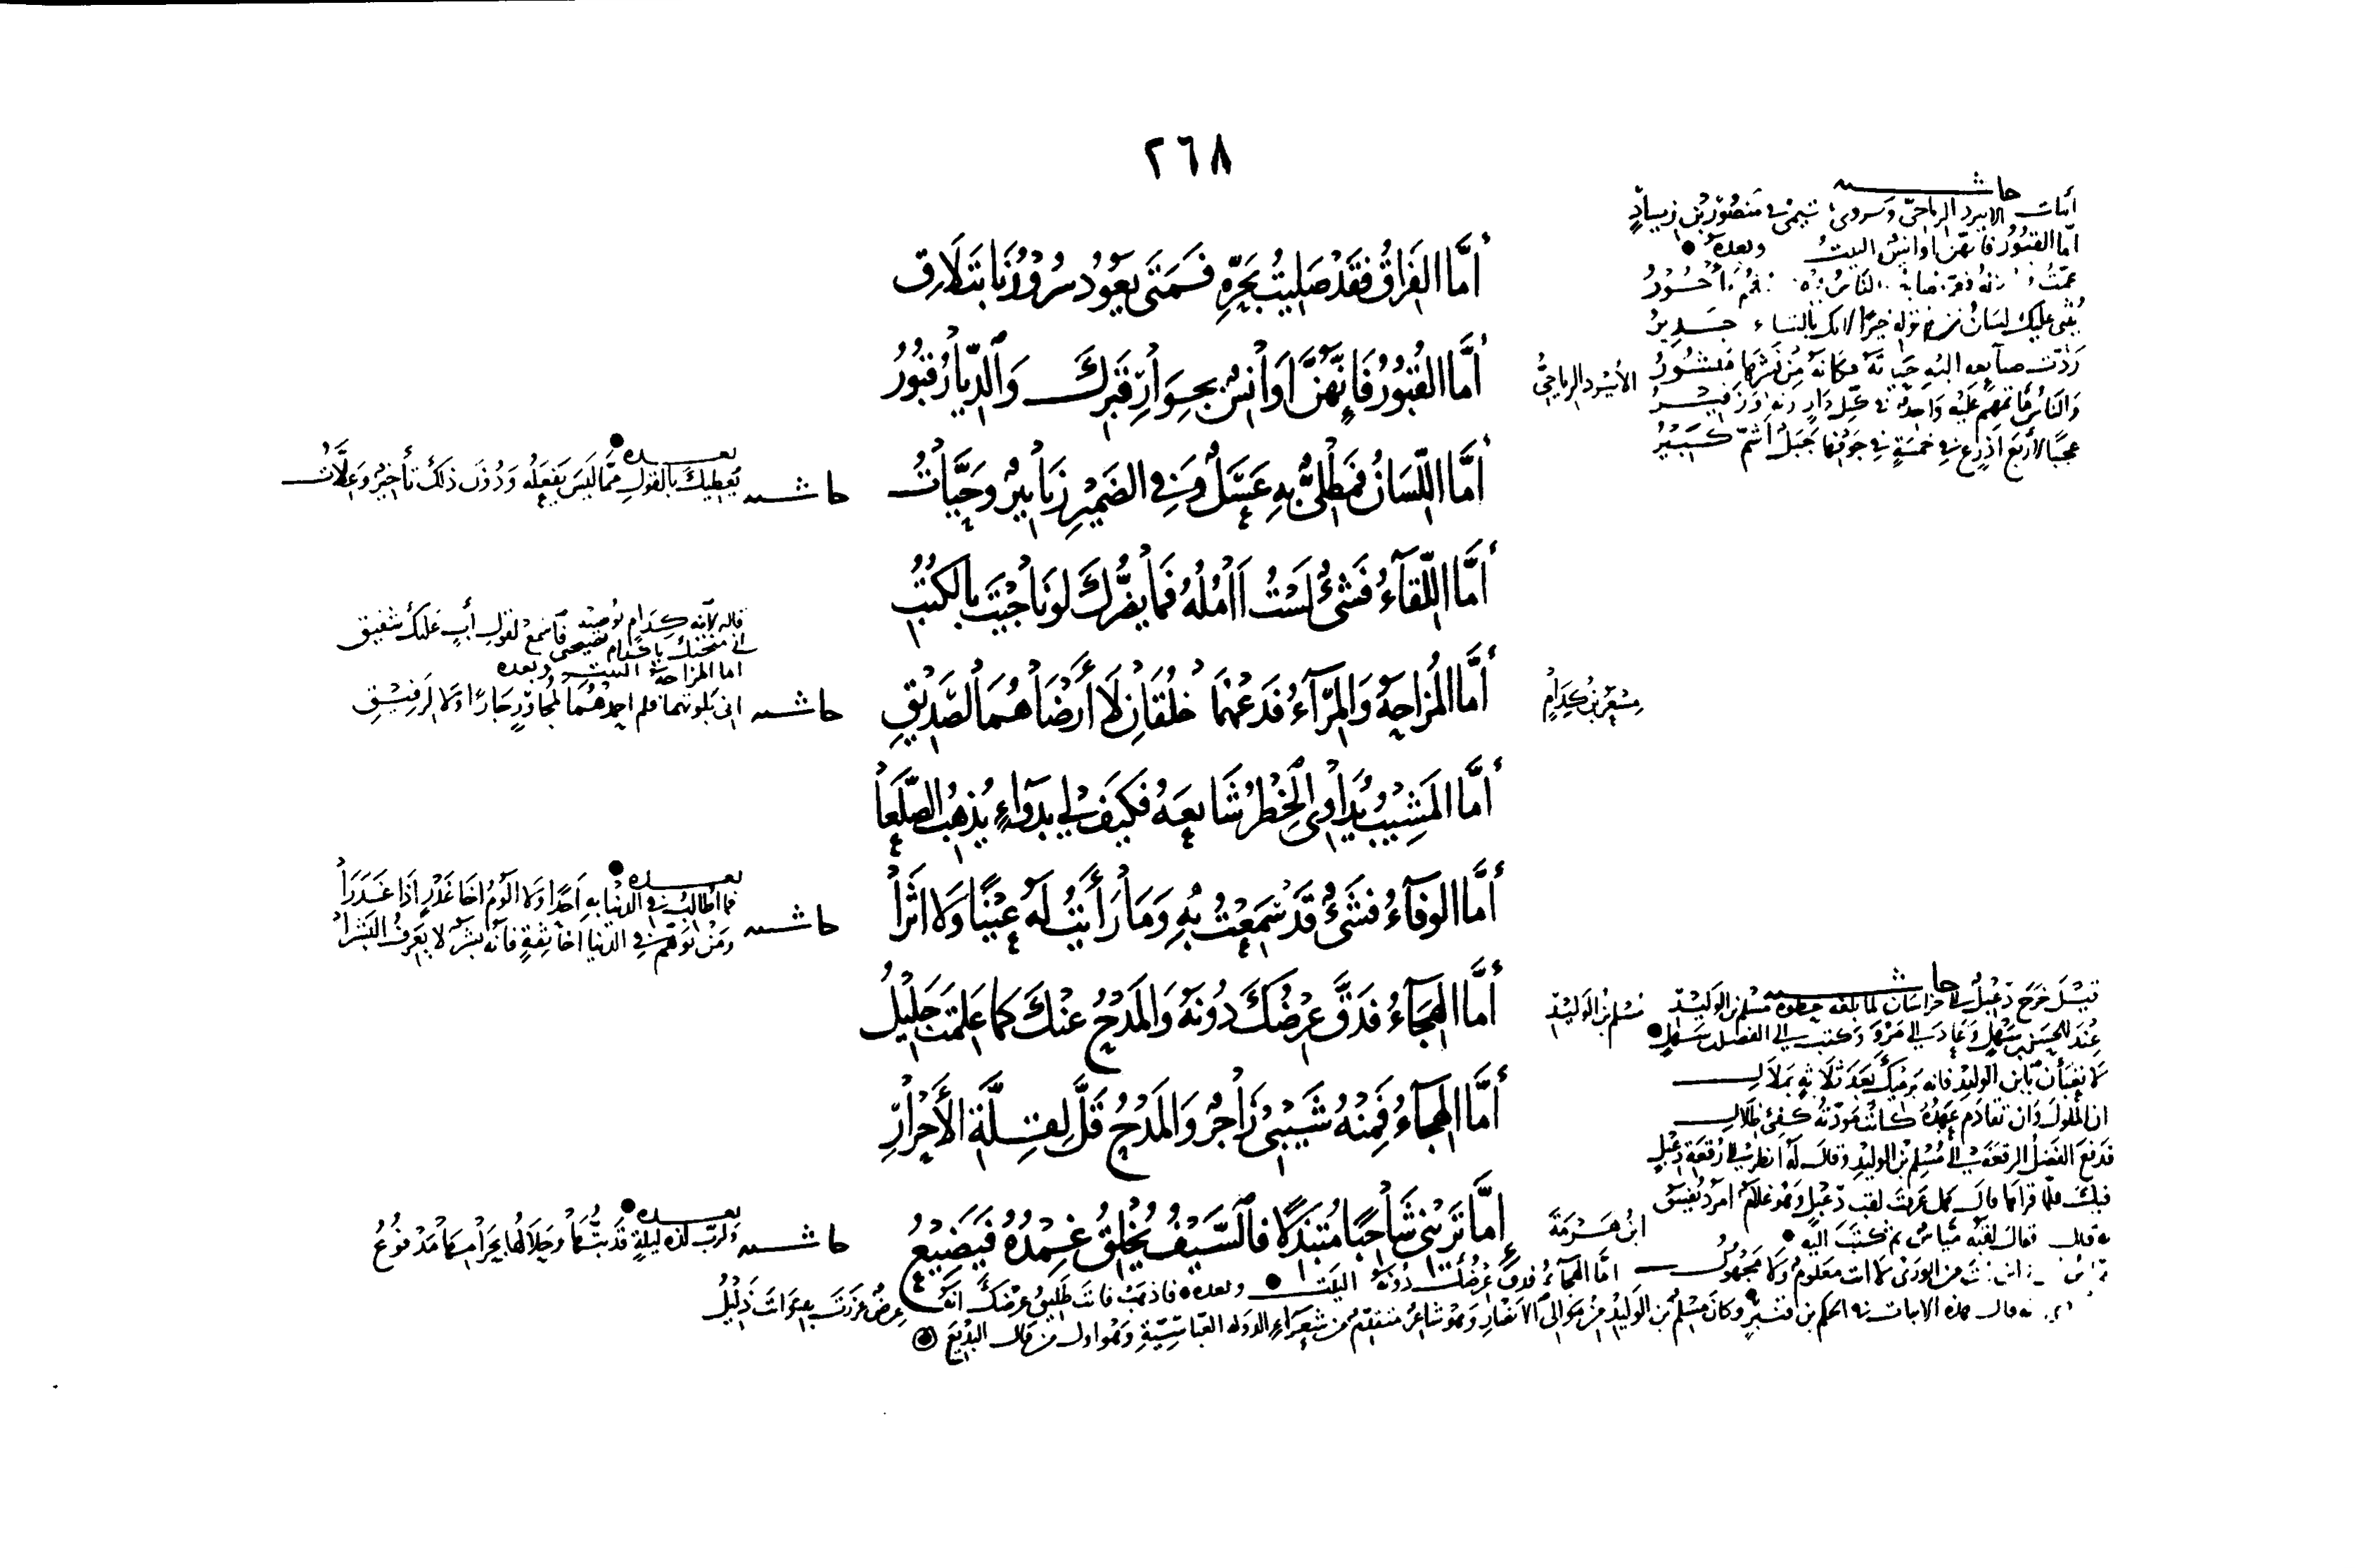 ٢٦٨
أَمَّا الفِرَاقُ فَقَدْ صَلِيتُ بِحَرِّهِ فَمَتَى يَعُودُ سُرُورُنَا بِتَلَاقِ
أَمَّا القُبُورُ فَإِنَّهُنَّ أَوَانِسٌ بِجِوَارِ قَبْرِكَ وَالدِّيَارُ قُبُورُ
أَمَّا اللِّسَانُ فَمَطْلِيٌّ بِهِ عَسَلٌ وَفِي الضَّمِيْرِ زَنَابِيرٌ وَحَيَّاتُ
أَمَّا اللِّقَآءُ فَشَيْءٌ لَسْتُ آمُلُهُ فَمَا يَضُرُّكَ لَوْ نَاجَيْتَ بِالكُتُبِ
أَمَّا المُزَاحَةُ وَالمِرَآءُ فَدَعْهُمَا خُلُقَانِ لَا أَرْضَاهُمَا لِصَدِيْقِ
أَمَّا المَشِيْبُ يُدَاوِي الخِطْرُ شَايِعَهُ فَكَيْفَ لِي بِدَوَاءٍ يُذْهِبُ الصَّلَعَا
أَمَّا الوَفَآءُ فَشَيْءٌ قَدْ سَمِعْتُ بِهِ وَمَا رَأَيْتُ لَهُ عَيْنًا وَلَا أَثَرَا
أَمَّا الهِجَآءُ فَدَقَّ عِرْضُكَ دُوْنَهُ وَالمَدْحُ عَنْكَ كَمَا عَلِمْتَ جَلِيْلُ
أَمَّا الهِجَآءُ فَمِنْهُ شَيْبِي زَاجِرٌ وَالمَدْحُ قَلَّ لِقِلَّةِ الأَحْرَارِ
إِمَّا تَرَيْنِي شَاحِبًا مُتَبَذِّلًا فَالسَّيْفُ يُخْلِقُ غِمْدُهُ فَيَضِيْعُ
حاشيه
أبيات الأبيرد الرياحي وَتروى في منصور بن زياد
أمّا القبور فإنهن أوانس البيت وبعده
يُثني عليك لسان من لم توله خيرًا لأنك بالثناء جدير
ردت صنايعه إليه حياته فكأنه من نشرها منشور
والناس مأتمهم عليه واحد في كل دار رنة وزفير
عجبًا لأربع أذرع في خمسة في جوفها جبل أشم كبير
الأبيرد الرياحي
حاشيه بعده
يعطيك بالقول مما ليس يفعله ودون ذلك تأخير وعلات
مسعر بن كدام
حاشيه
قاله لابنه كدام يوصيه
إني منحتك يا كدام نصيحتي فاسمع لقول أب عليك شفيق
أما المزاحة البيت وبعده
إني بلوتهما فلم أحمدهما لمجاور جارًا ولا لرفيق
حاشيه بعده
فما أطالب في الدنيا به أحدًا ولا ألوم أخا غدر إذا غدرا
ومن توهم في الدنيا أخا ثقة فإنه بشر لا يعرف البشرا
مسلم بن الوليد
حاشيه
قيل خرج دعبل إلى خراسان لما بلغه حظوة مسلم بن الوليد
عند الحسن بن سهل فصار إلى مرو وكتب إلى الفضل بن سهل
لا تعبأن بابن الوليد فإنه يرميك بعد ثلاثة بملال
إن الملول وإن تقادم عهده كانت مودته كفيء ظلال
فدفع الفضل الرقعة إلى مسلم بن الوليد وقال له انظر إلى رقعة دعبل
فيك فلما قرأها قال هل عرفت لقب دعبل وهو غلام أمرد
قال لقبه مياس ثم كتب إليه
من الورى لا أنت معلوم ولا مجهول
أما الهجاء فدق عرضك دونه البيت وبعده فاذهب فأنت طليق عرضك إنه عرض عززت به وأنت ذليل
قال هذه الأبيات في الحكم بن قنبر وكان مسلم بن الوليد من موالي الأنصار وهو شاعر متقدم من شعراء الدولة العباسية وهو أول من قال البديع
ابن هرمة
حاشيه بعده
ولرب لذة ليلة قد بتها وحلالها بحرامها مدفوع